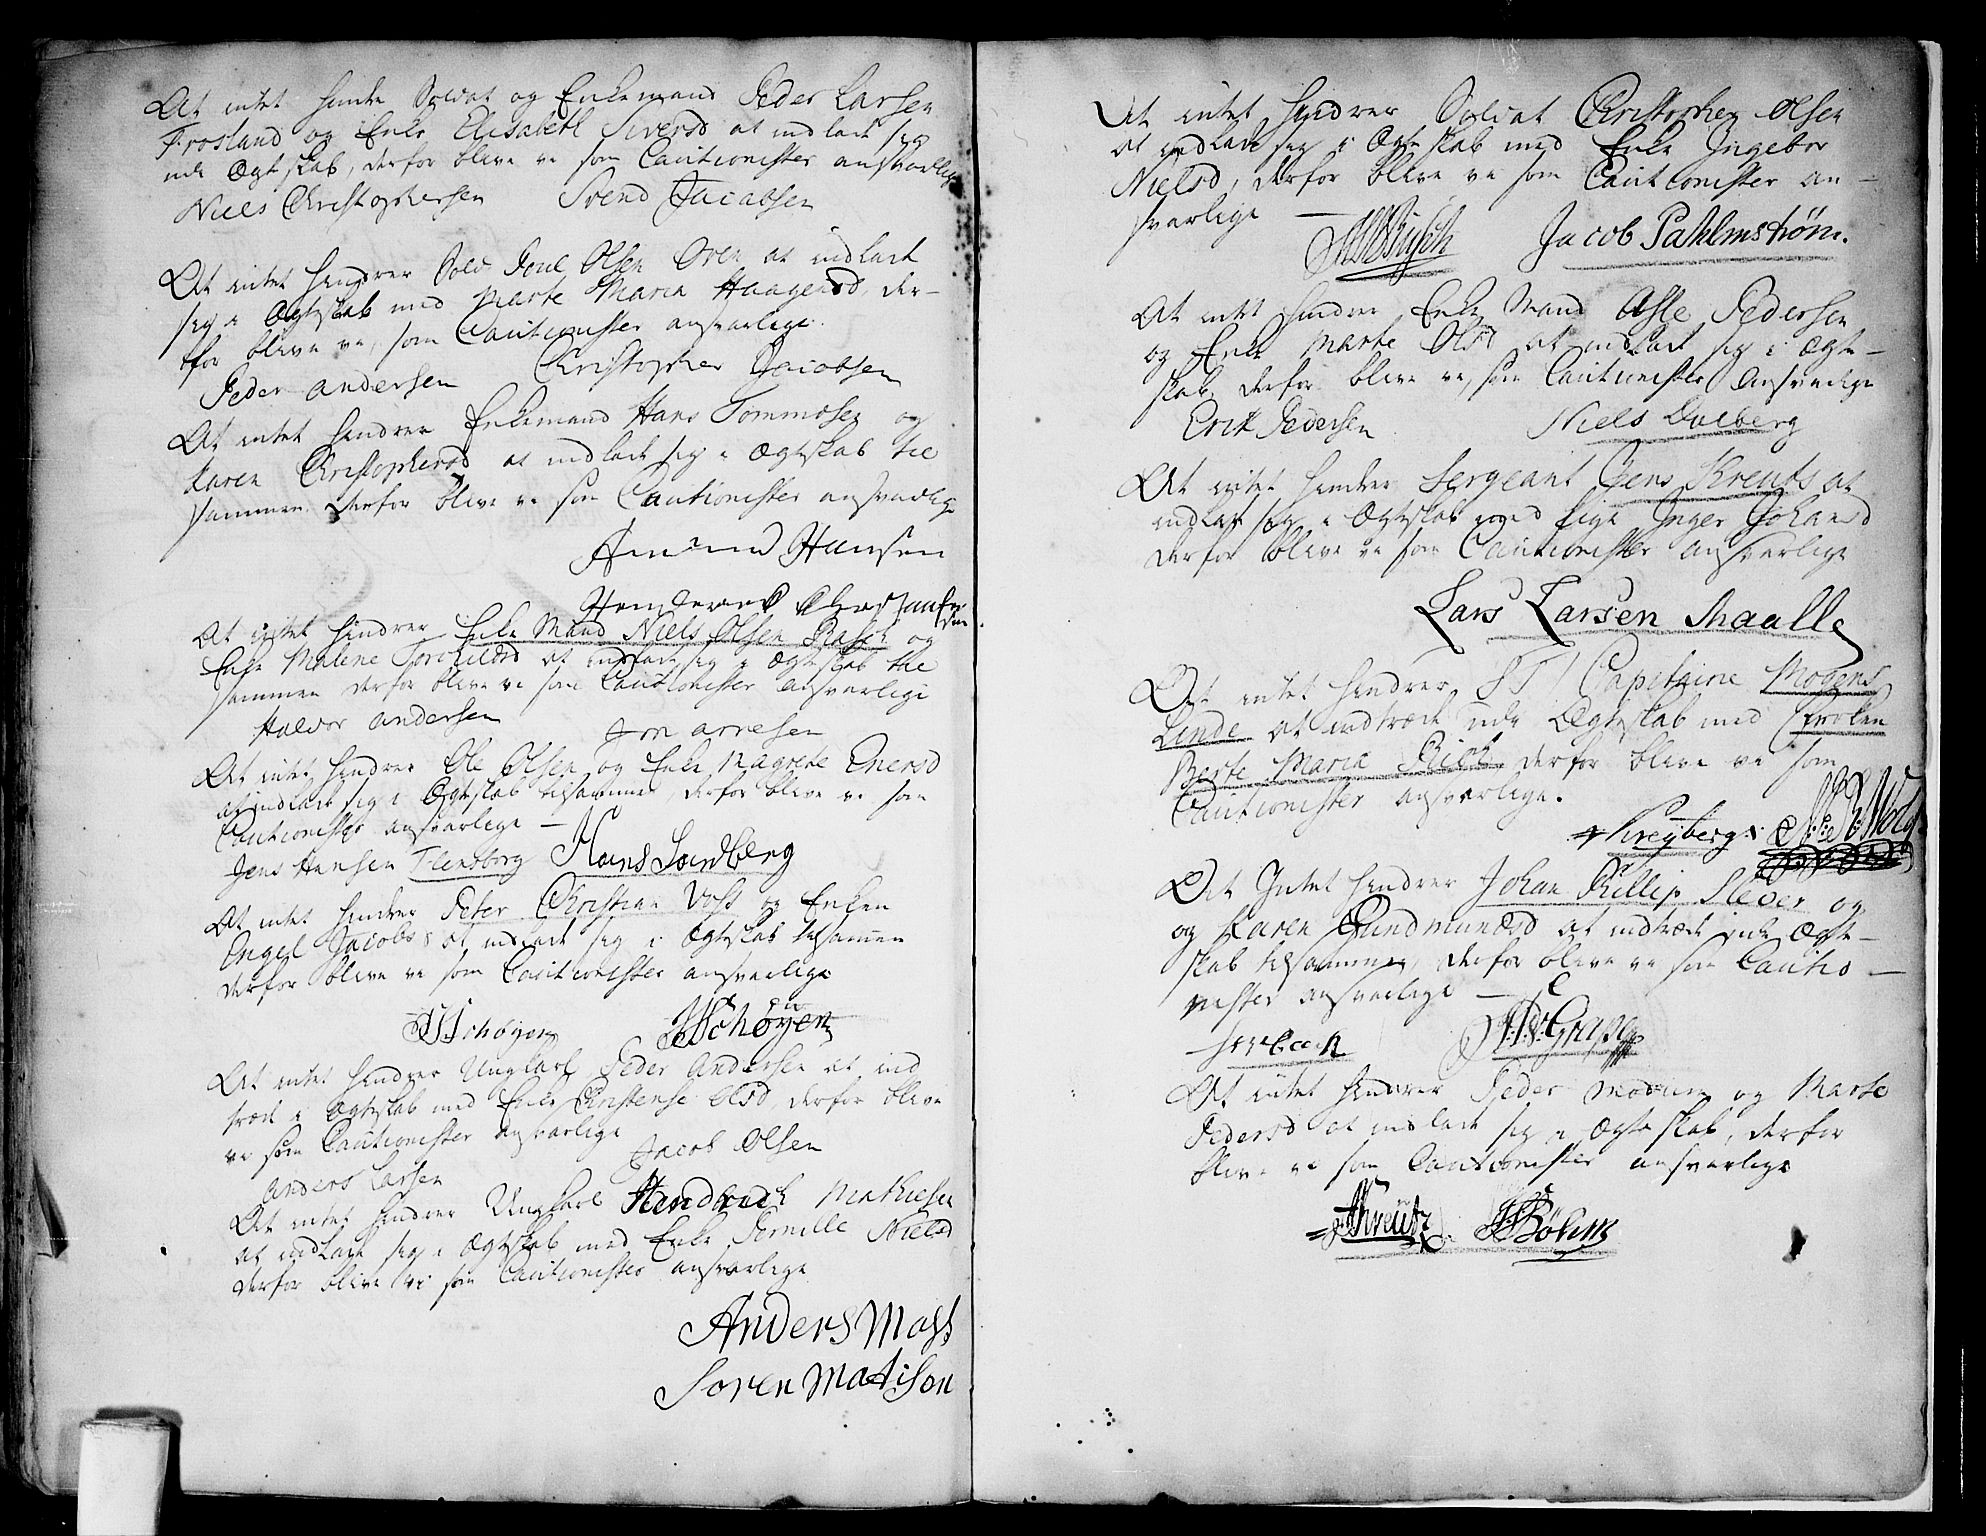 At intet hindre Soldat og Enkemand Peder Larsen
Frosland og Enke Elisabeth Siversd at indlade sig
udi Ægteskab, derfor blive vi som Cautionister ansvarlige
Niels Christophersen Svend Jacobsen
At intet hindrer Sold Poul Olsen Oren at indlade
sig i Ægteskab med Marte Maria Haagensd, der-
for blive vi, som Cautionister ansvarlige.
Peder andersen Christopher Jacobsen
At intet hindrer Enkemand Hans Tommesen og
Karen Christophersd at indlade sig i Ægteskab til
sammen. Derfor blive vi som Cautionister ansvarlige
Amund Hansen
At intet hindrer Enke Mand Niels Olsen Rasch og
Enke Malene Torkildsd at indlade sig i Ægteskab til
sammen derfor blive vi som Cautionister ansvarlige
Halvor andersen Jon arnesen
At intet hindrer Ole Olsen og Enke Magrete Enersd
at indlade sig i Ægteskab tilsammen derfor blive vi som
Cautionister ansvarlige —
Jens Hansen Flensborg Hans Sandberg
At intet hindrer Peter Christian Vost og Enken
Engel Jacobs at indlade sig i Ægteskab tilsamen
derfor blive vi som Cautionister ansvarlige
Schøyen Schøyen
At intet hindrer Ungkarl Peder Andersen at ind
træde i Ægteskab med Enke Christense Olsd, derfor blive
vi som Cautionister ansvarlige
Anders Larsen Jacob Olsen
At intet hindrer Ungkarl Hendrich Mathiesen
at indlade sig i Ægteskab med Enke Pernille Nielsd
derfor blive vi som Cautionister ansvarlige
Anders Moss
Soren Matison
At intet hindrer Soldat Christopher Olsen
at indlade sig i Ægteskab med Enke Ingebor
Nielsd, derfor blive vi som Cautionister an-
svarlige — Busch Jacob Pahlmstrøm.
At intet hindrer Enke Mand Asle Pedersen
og Enke Marte Olsd at indlade sig i Ægte-
skab, derfor blive vi, som Cautionister Ansvarlige
Erik Pedersen Niels Dalberg
At intet hindrer Sergeant Jens Kreuts at
indlade sig i Ægteskab med Pige Inger Johansd
derfor blive vi som Cautionister ansvarlige
Lars Larsen Skaalle
At intet hindrer S T Capitaine Mogens
Linde at indtræde udi Ægteskab med Frøken
Berte Maria Ribb, derfor blive vi som
Cautionister ansvarlige.
Kreyberg.
At Intet hindrer Johan Phillip Stever og
og Karen Gundmundsd at indtræde udi Ægte-
skab tilsammen, derfor blive vi som Cautio-
nister ansvarlige —
At intet hindrer Peder Modum og Marte
Pedersd at indlade sig i Ægteskab, derfor
blive vi som Cautionister ansvarlige
Kreütz Böhme